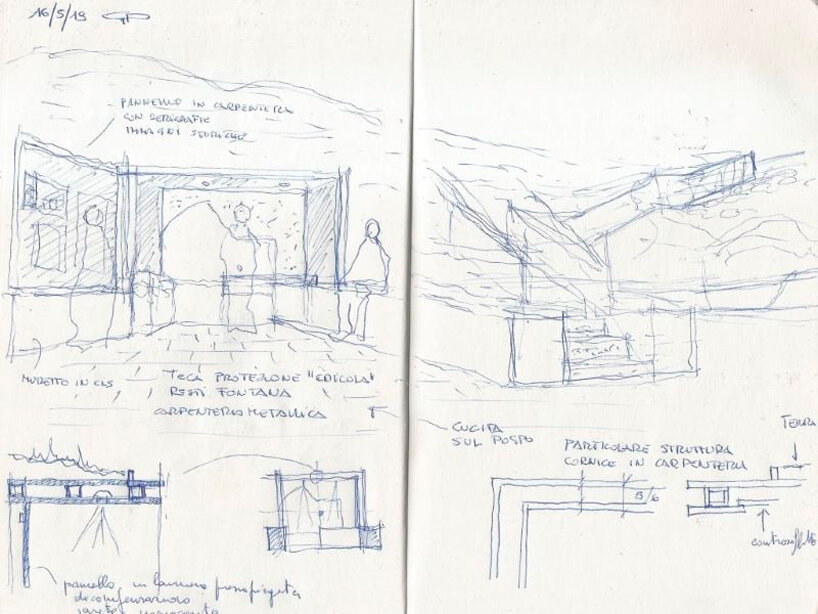 16/5/19
PANNELLO IN CARPENTERIA
CON SERIGRAFIE
IMMAGINI STORICHE
MURETTO IN CLS
TECA PROTEZIONE "EDICOLA"
RESTI FONTANA
CARPENTERIA METALLICA
CUCITA
SUL POSTO
PARTICOLARE STRUTTURA
CORNICE IN CARPENTERIA
TERRA
5/6
controsoffitto
pannello in lamiera pressopiegata